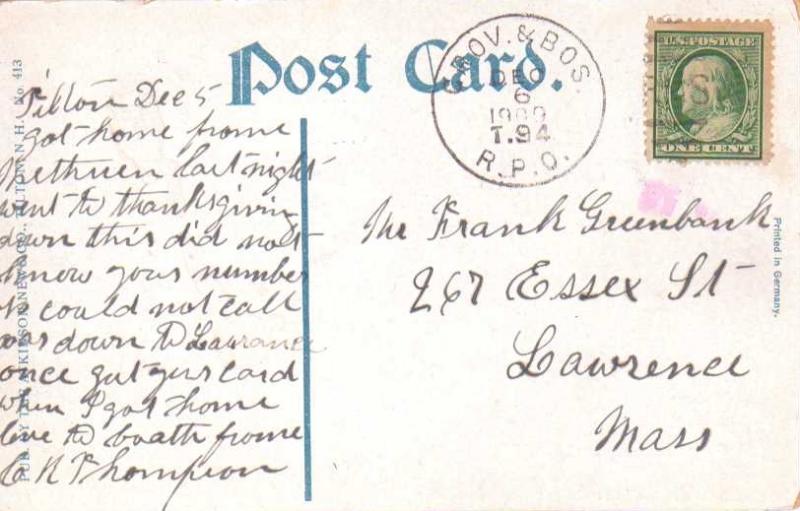 Post Card.
GROV. & BOS.
DEC
6
1909
T.94
R.P.O.
U.S. POSTAGE
ONE CENT
Tilton Dec 5
got home frome
Methuen last night
went to thanksgivin
down this did not
know your number
could not call
was down to Lawrance
once gut yus card
when I got home
love to boath frome
C N Thompson
Mr Frank Greenbank
267 Essex St
Lawrence
Mass
Printed in Germany.
PUB. BY THE ATKINSON NEWS CO., TILTON, N. H. No. 413